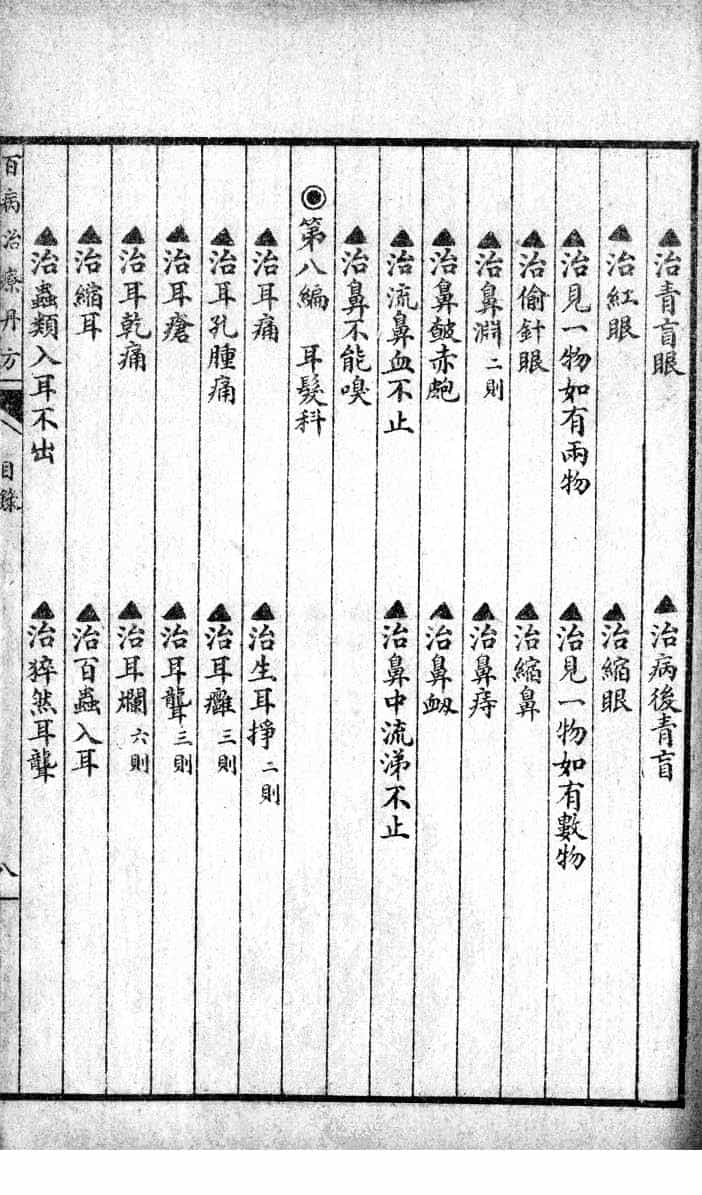 ▲治青盲眼 ▲治病後青盲
▲治紅眼 ▲治縮眼
▲治見一物如有兩物 ▲治見一物如有數物
▲治偷針眼 ▲治縮鼻
▲治鼻淵二則 ▲治鼻痔
▲治鼻皶赤皰 ▲治鼻衂
▲治流鼻血不止 ▲治鼻中流涕不止
▲治鼻不能嗅
◉第八編 耳髮科
▲治耳痛 ▲治生耳掙二則
▲治耳孔腫痛 ▲治耳癰三則
▲治耳瘡 ▲治耳聾三則
▲治耳乾痛 ▲治耳爛六則
▲治縮耳 ▲治百蟲入耳
▲治蟲類入耳不出 ▲治猝然耳聾
百病治療丹方 目錄 八